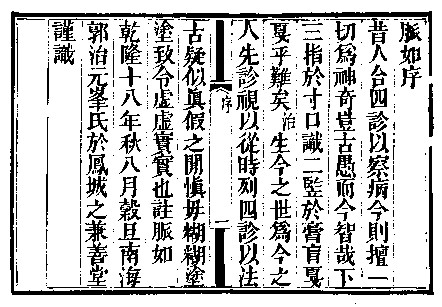 脈如序
昔人合四診以察病今則擅一
切爲神奇豈古愚而今智哉下
三指於寸口識二監於膏肓戛
戛乎難矣治生今之世爲今之
人先診視以從時列四診以法
序
一
古疑似眞假之閒慎毋糊糊塗
塗致令虛虛實實也註脈如
乾隆十八年秋八月穀旦南海
郭治元峯氏於鳳城之兼善堂
謹識